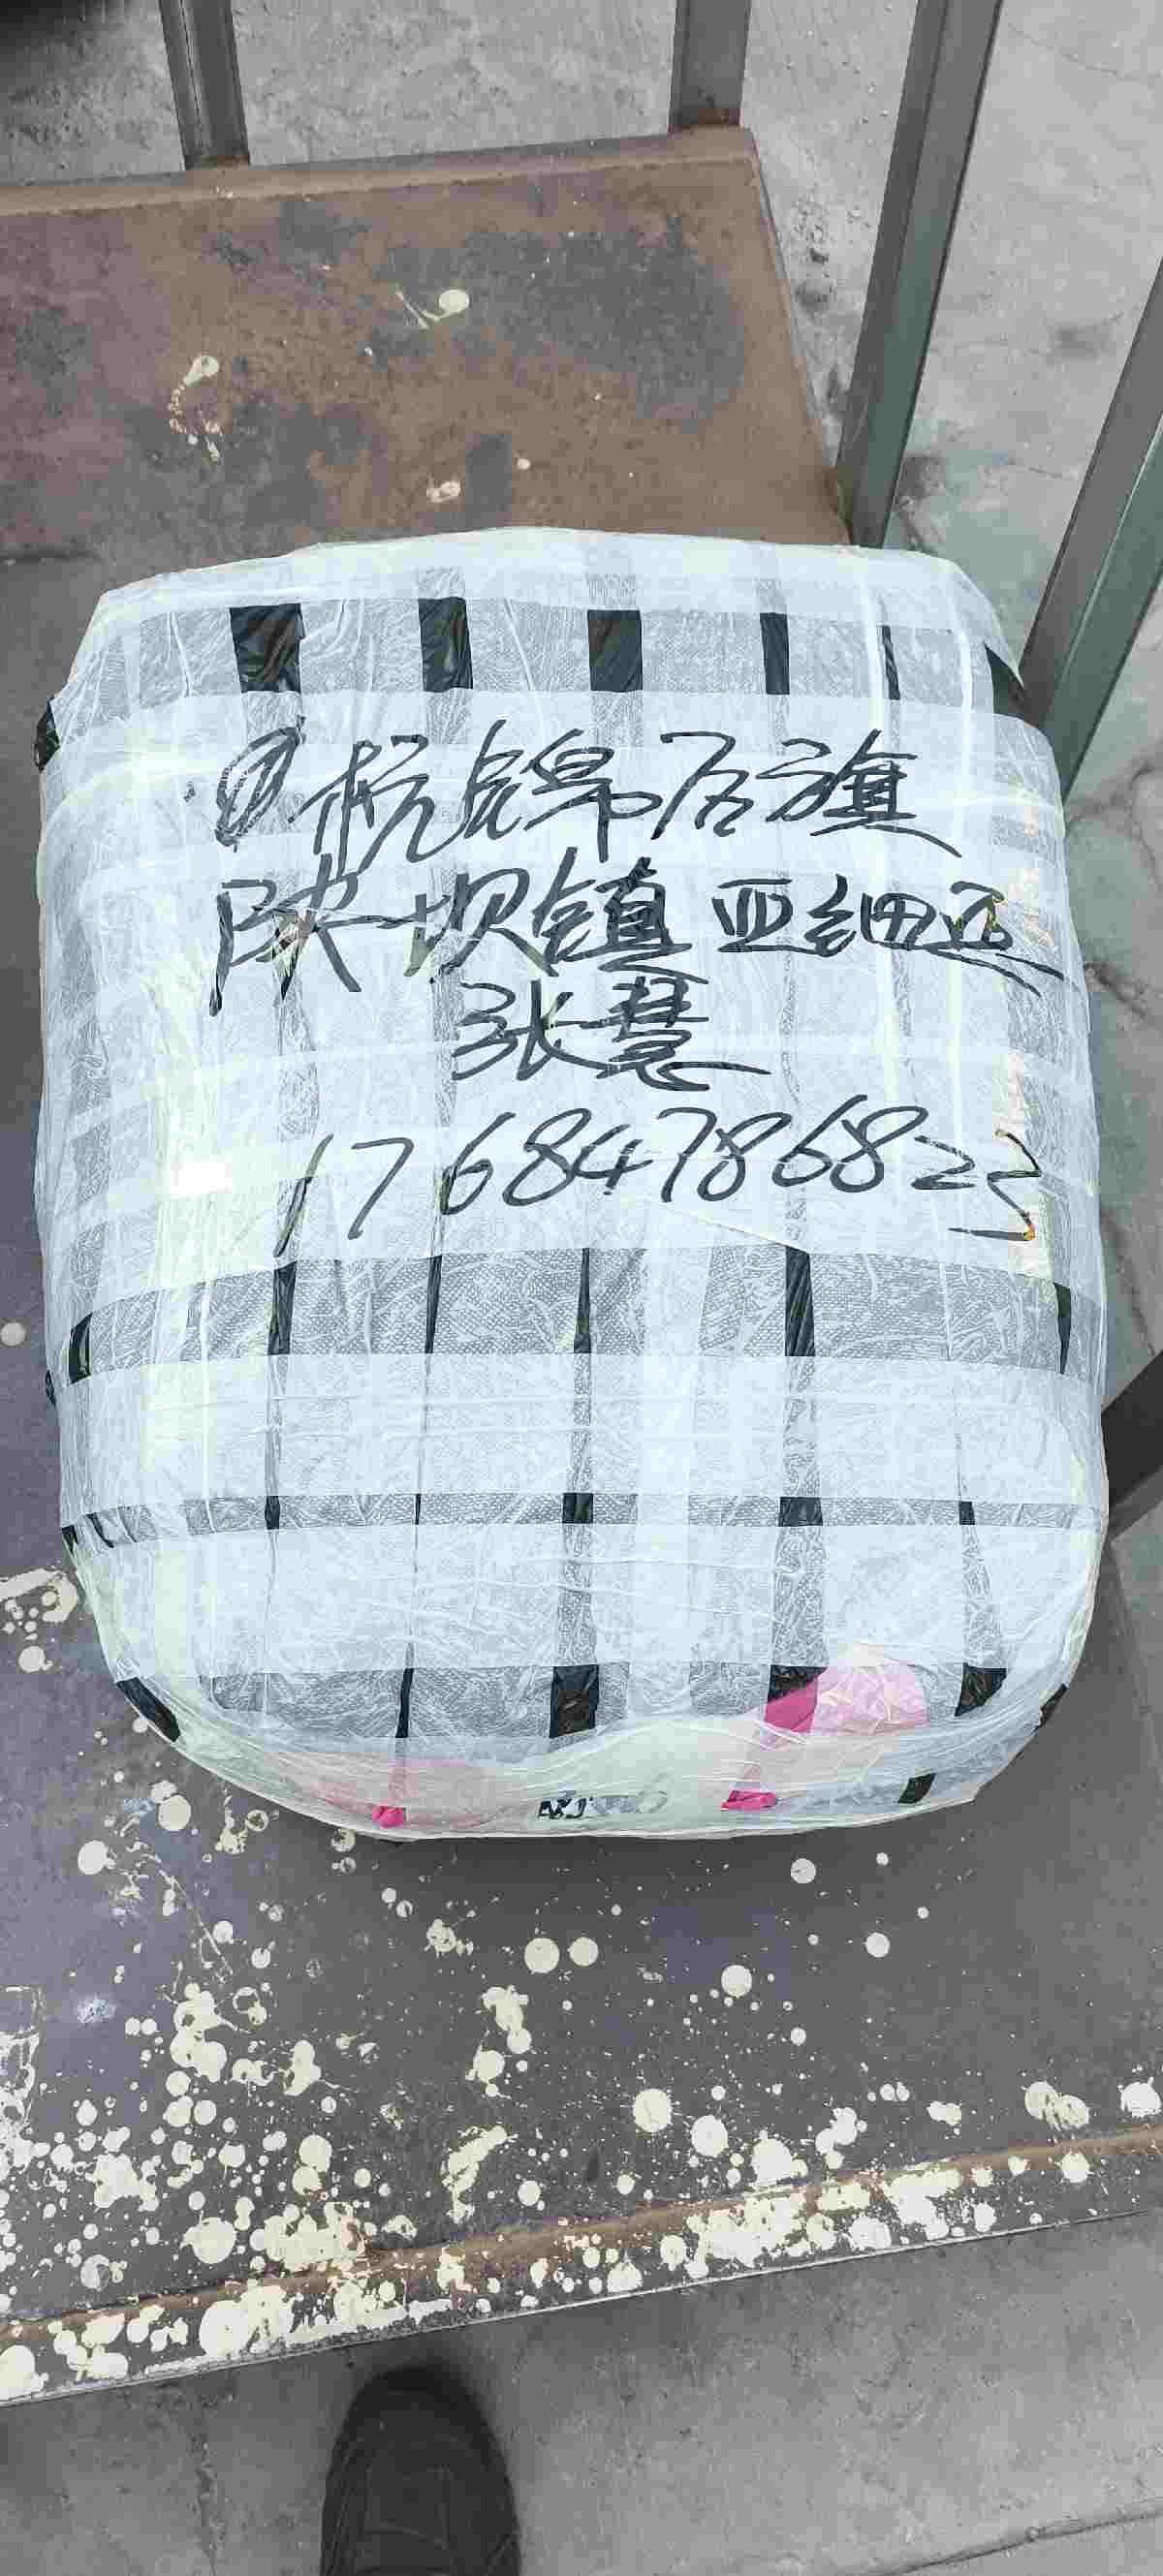 ① 杭锦后旗
陕坝镇 亚细亚
张慧
17684786823